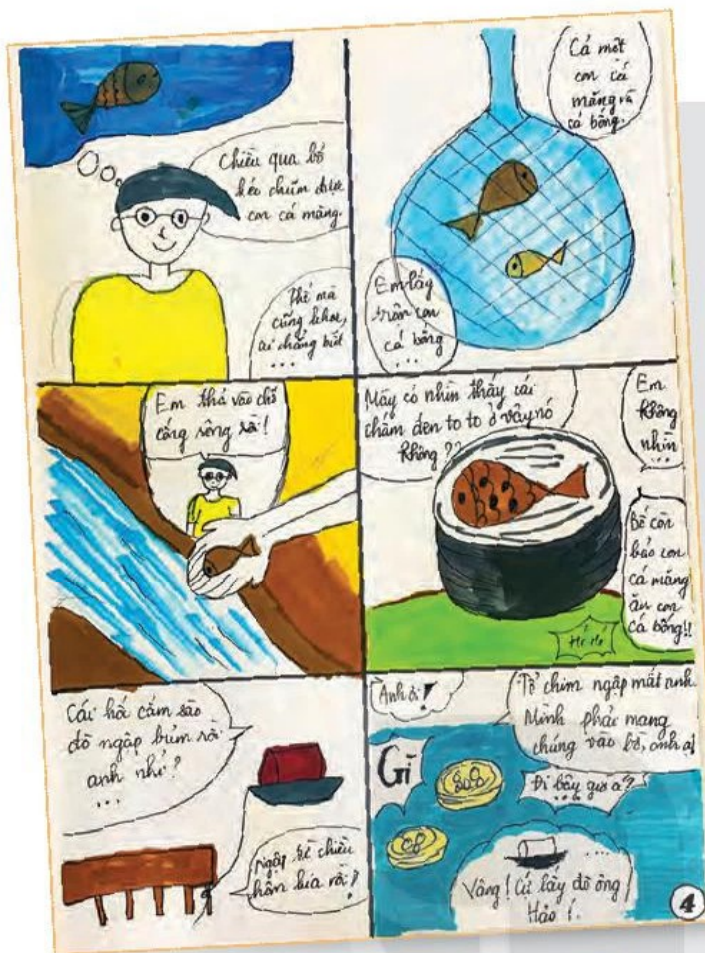 Chiều qua bố
kéo chũm được
con cá măng.
Thế mà
cũng khoe,
ai chẳng biết
...
Cả một
con cá
măng và
cá bống.
Em lấy
trộm con
cá bống
...
Em thả vào chỗ
cống sông rồi!
Mày có nhìn thấy cái
chấm đen to to ở vây nó
không??
Em
không
nhìn
...
Bố còn
bảo con
cá măng
ăn con
cá bống!!
Hé Hé
Cái hố cắm sào
đò ngập bủm rồi
anh nhỉ?
...
Ngập từ chiều
hôm kia rồi!
Anh ơi!
Gì
Tổ chim ngập mất anh.
Mình phải mang
chúng vào bờ, anh ạ!
Đi bây giờ á?
...
....
Vâng! Cứ lấy đò ông
Hảo!
4